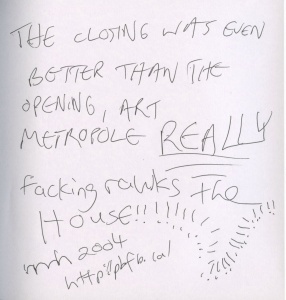 THE CLOSING WAS EVEN
BETTER THAN THE
OPENING, ART
METROPOLE REALLY
facking rawks The
House!!!!!!!!!!!!!!!!
mnh 2004
http://pbfb.ca/